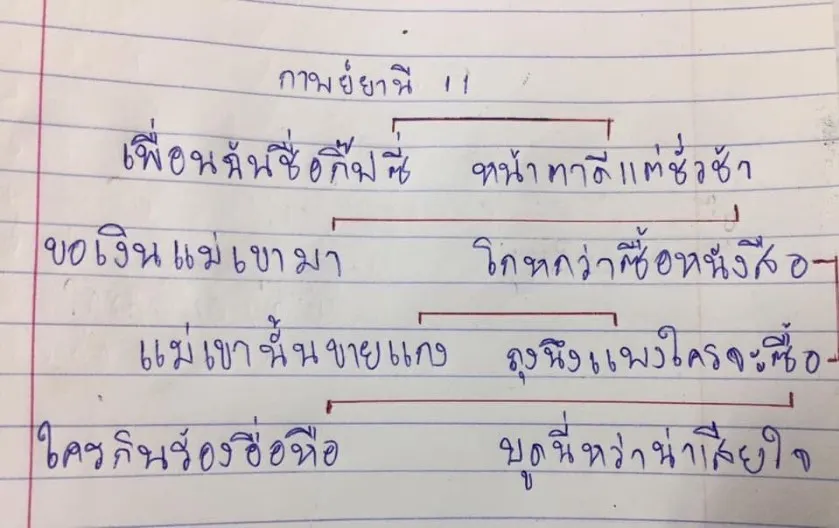 กาพย์ยานี 11
เพื่อนฉันชื่อกิ๊ฟซี่ หน้าตาดีแต่ชั่วช้า
ขอเงินแม่เขามา โกหกว่าซื้อหนังสือ
แม่เขานั้นขายแกง ถุงนึงแพงใครจะซื้อ
ใครกินร้องอื่อหือ บูดนี่หว่าน่าเสียใจ